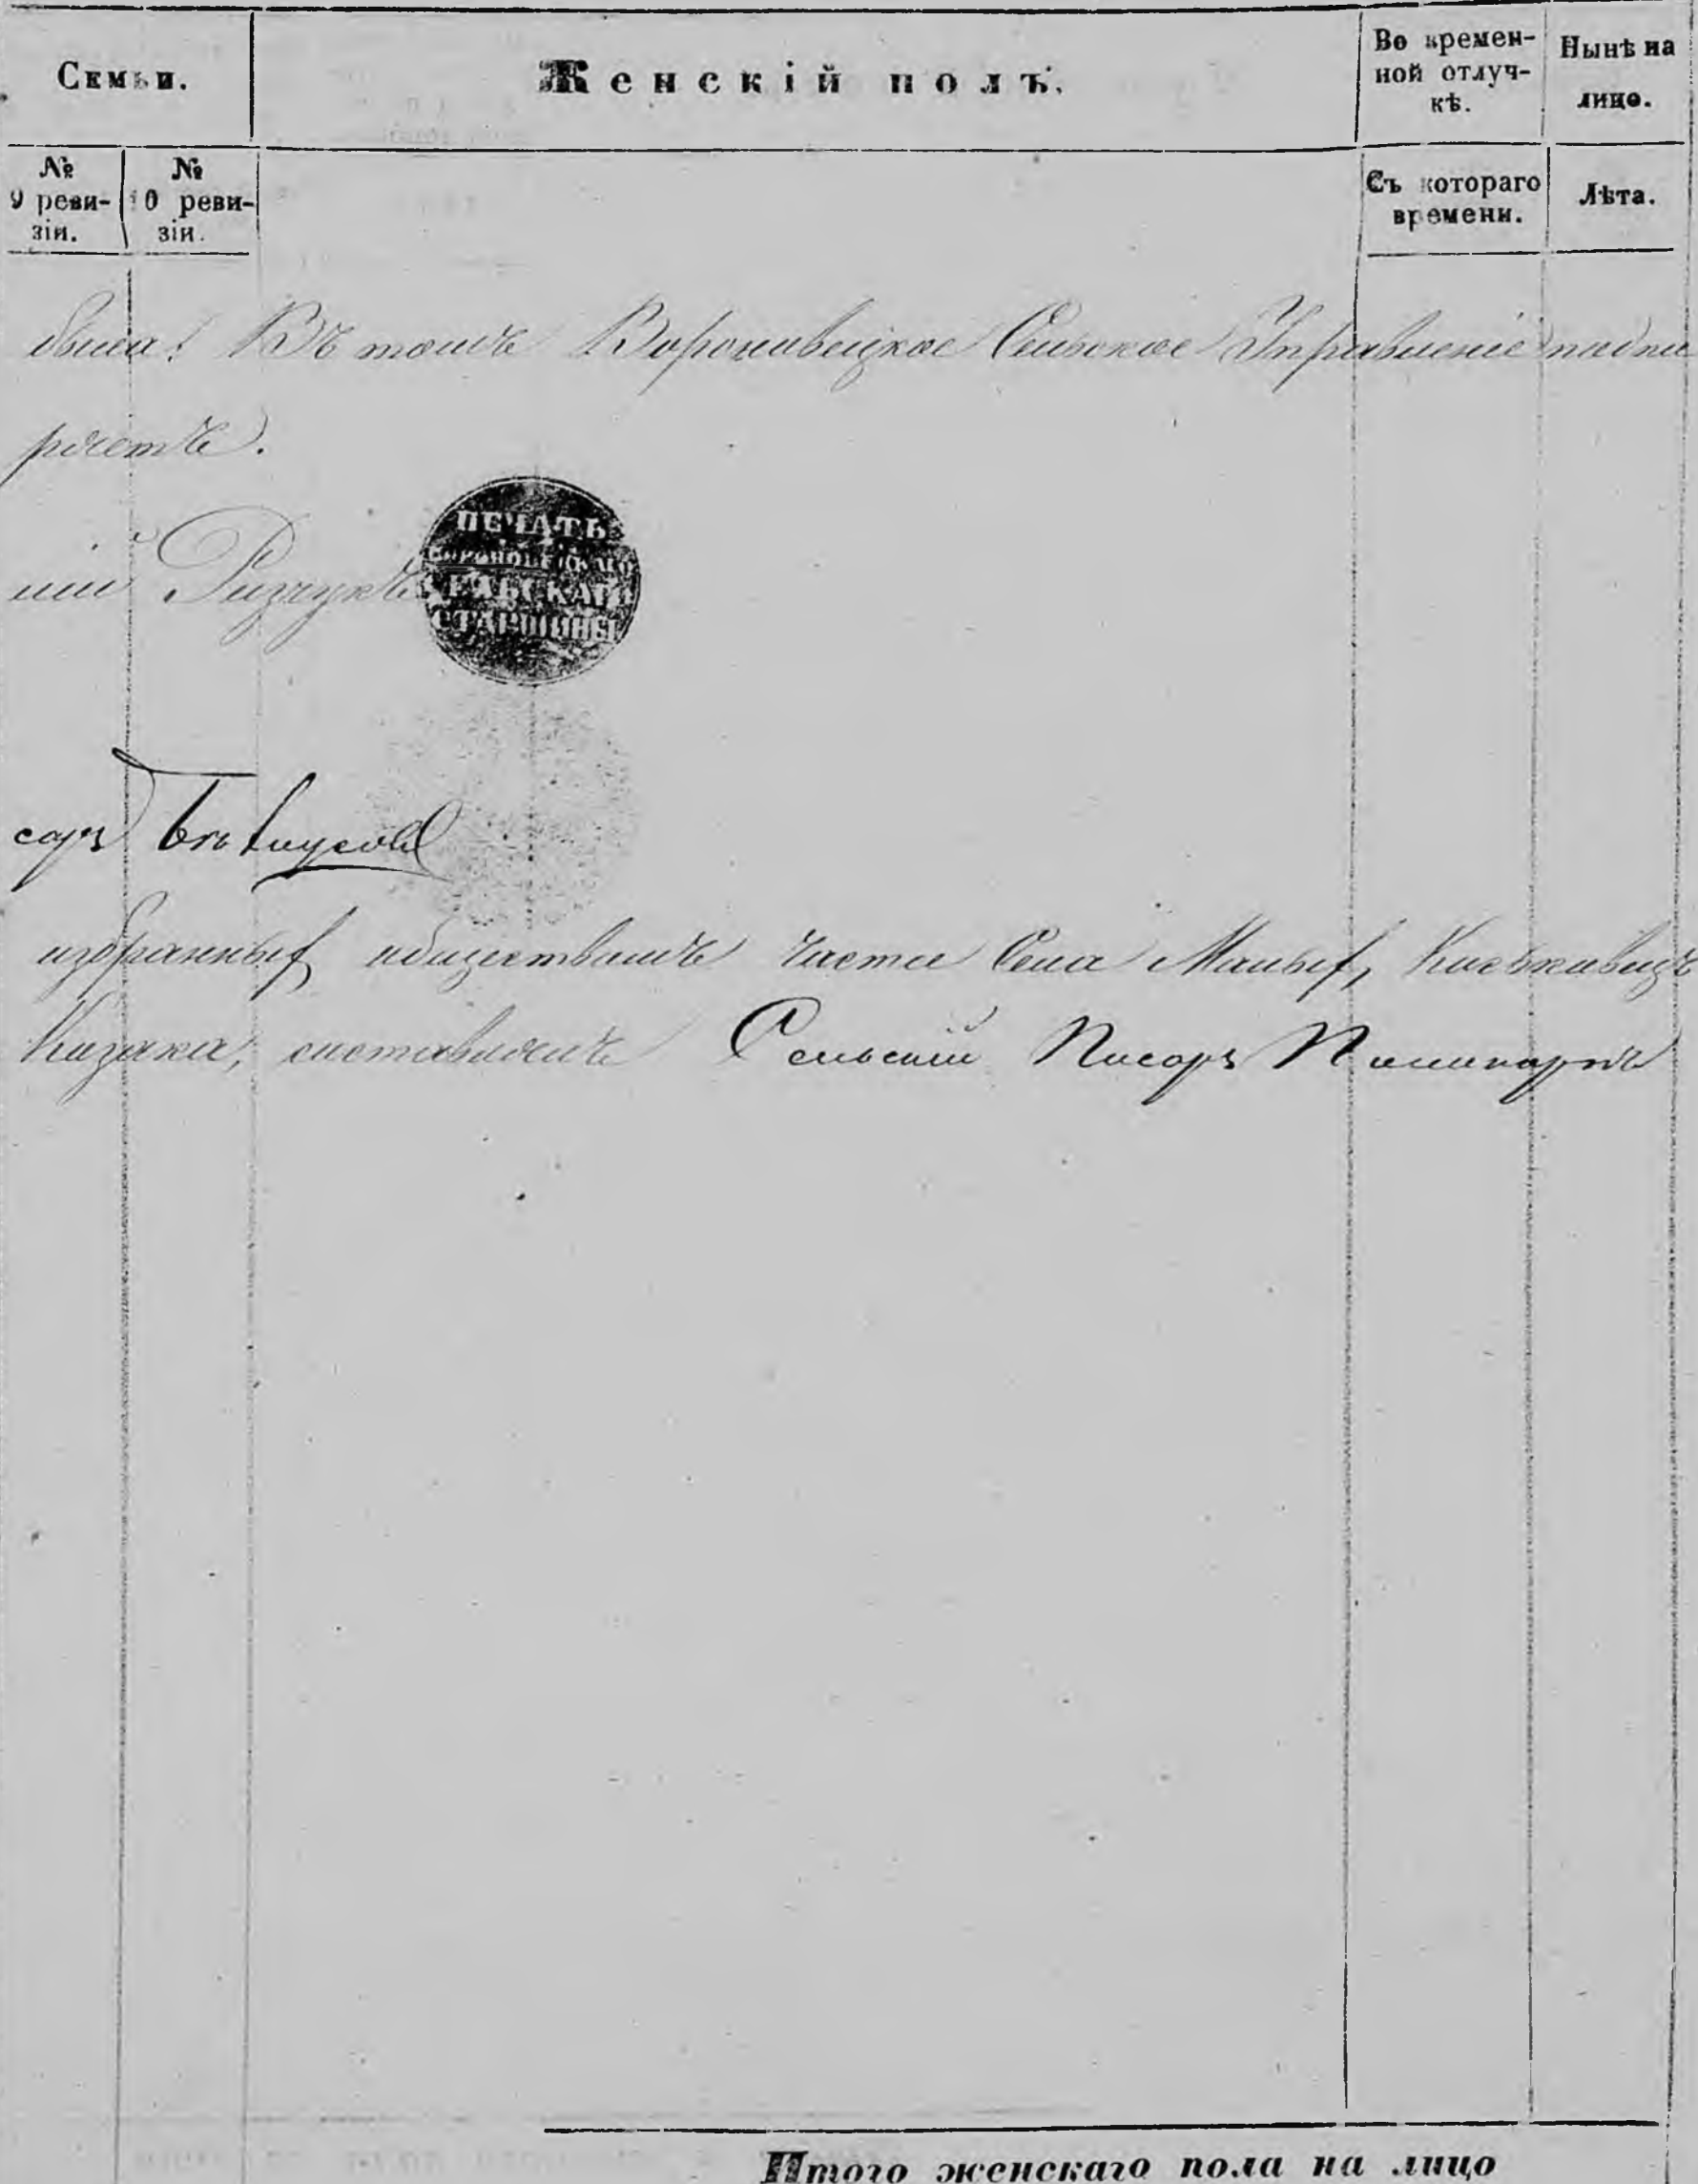 Семьи.
Женскій полъ.
Во времен-
ной отлуч-
кѣ.
Нынѣ на
лицо.
№
9 реви-
зіи.
№
10 реви-
зіи.
Съ котораго
времени.
Лѣта.
была! Въ томъ Вороновецкое Сельское Управленіе подпи
ПЕЧАТЬ
СЕЛЬСКАГО
СТАРШИНЫ
саръ
избранныхъ обществомъ части Села Малыхъ
Казака, составилъ Сельскій Писаръ
Итого женскаго пола на лицо